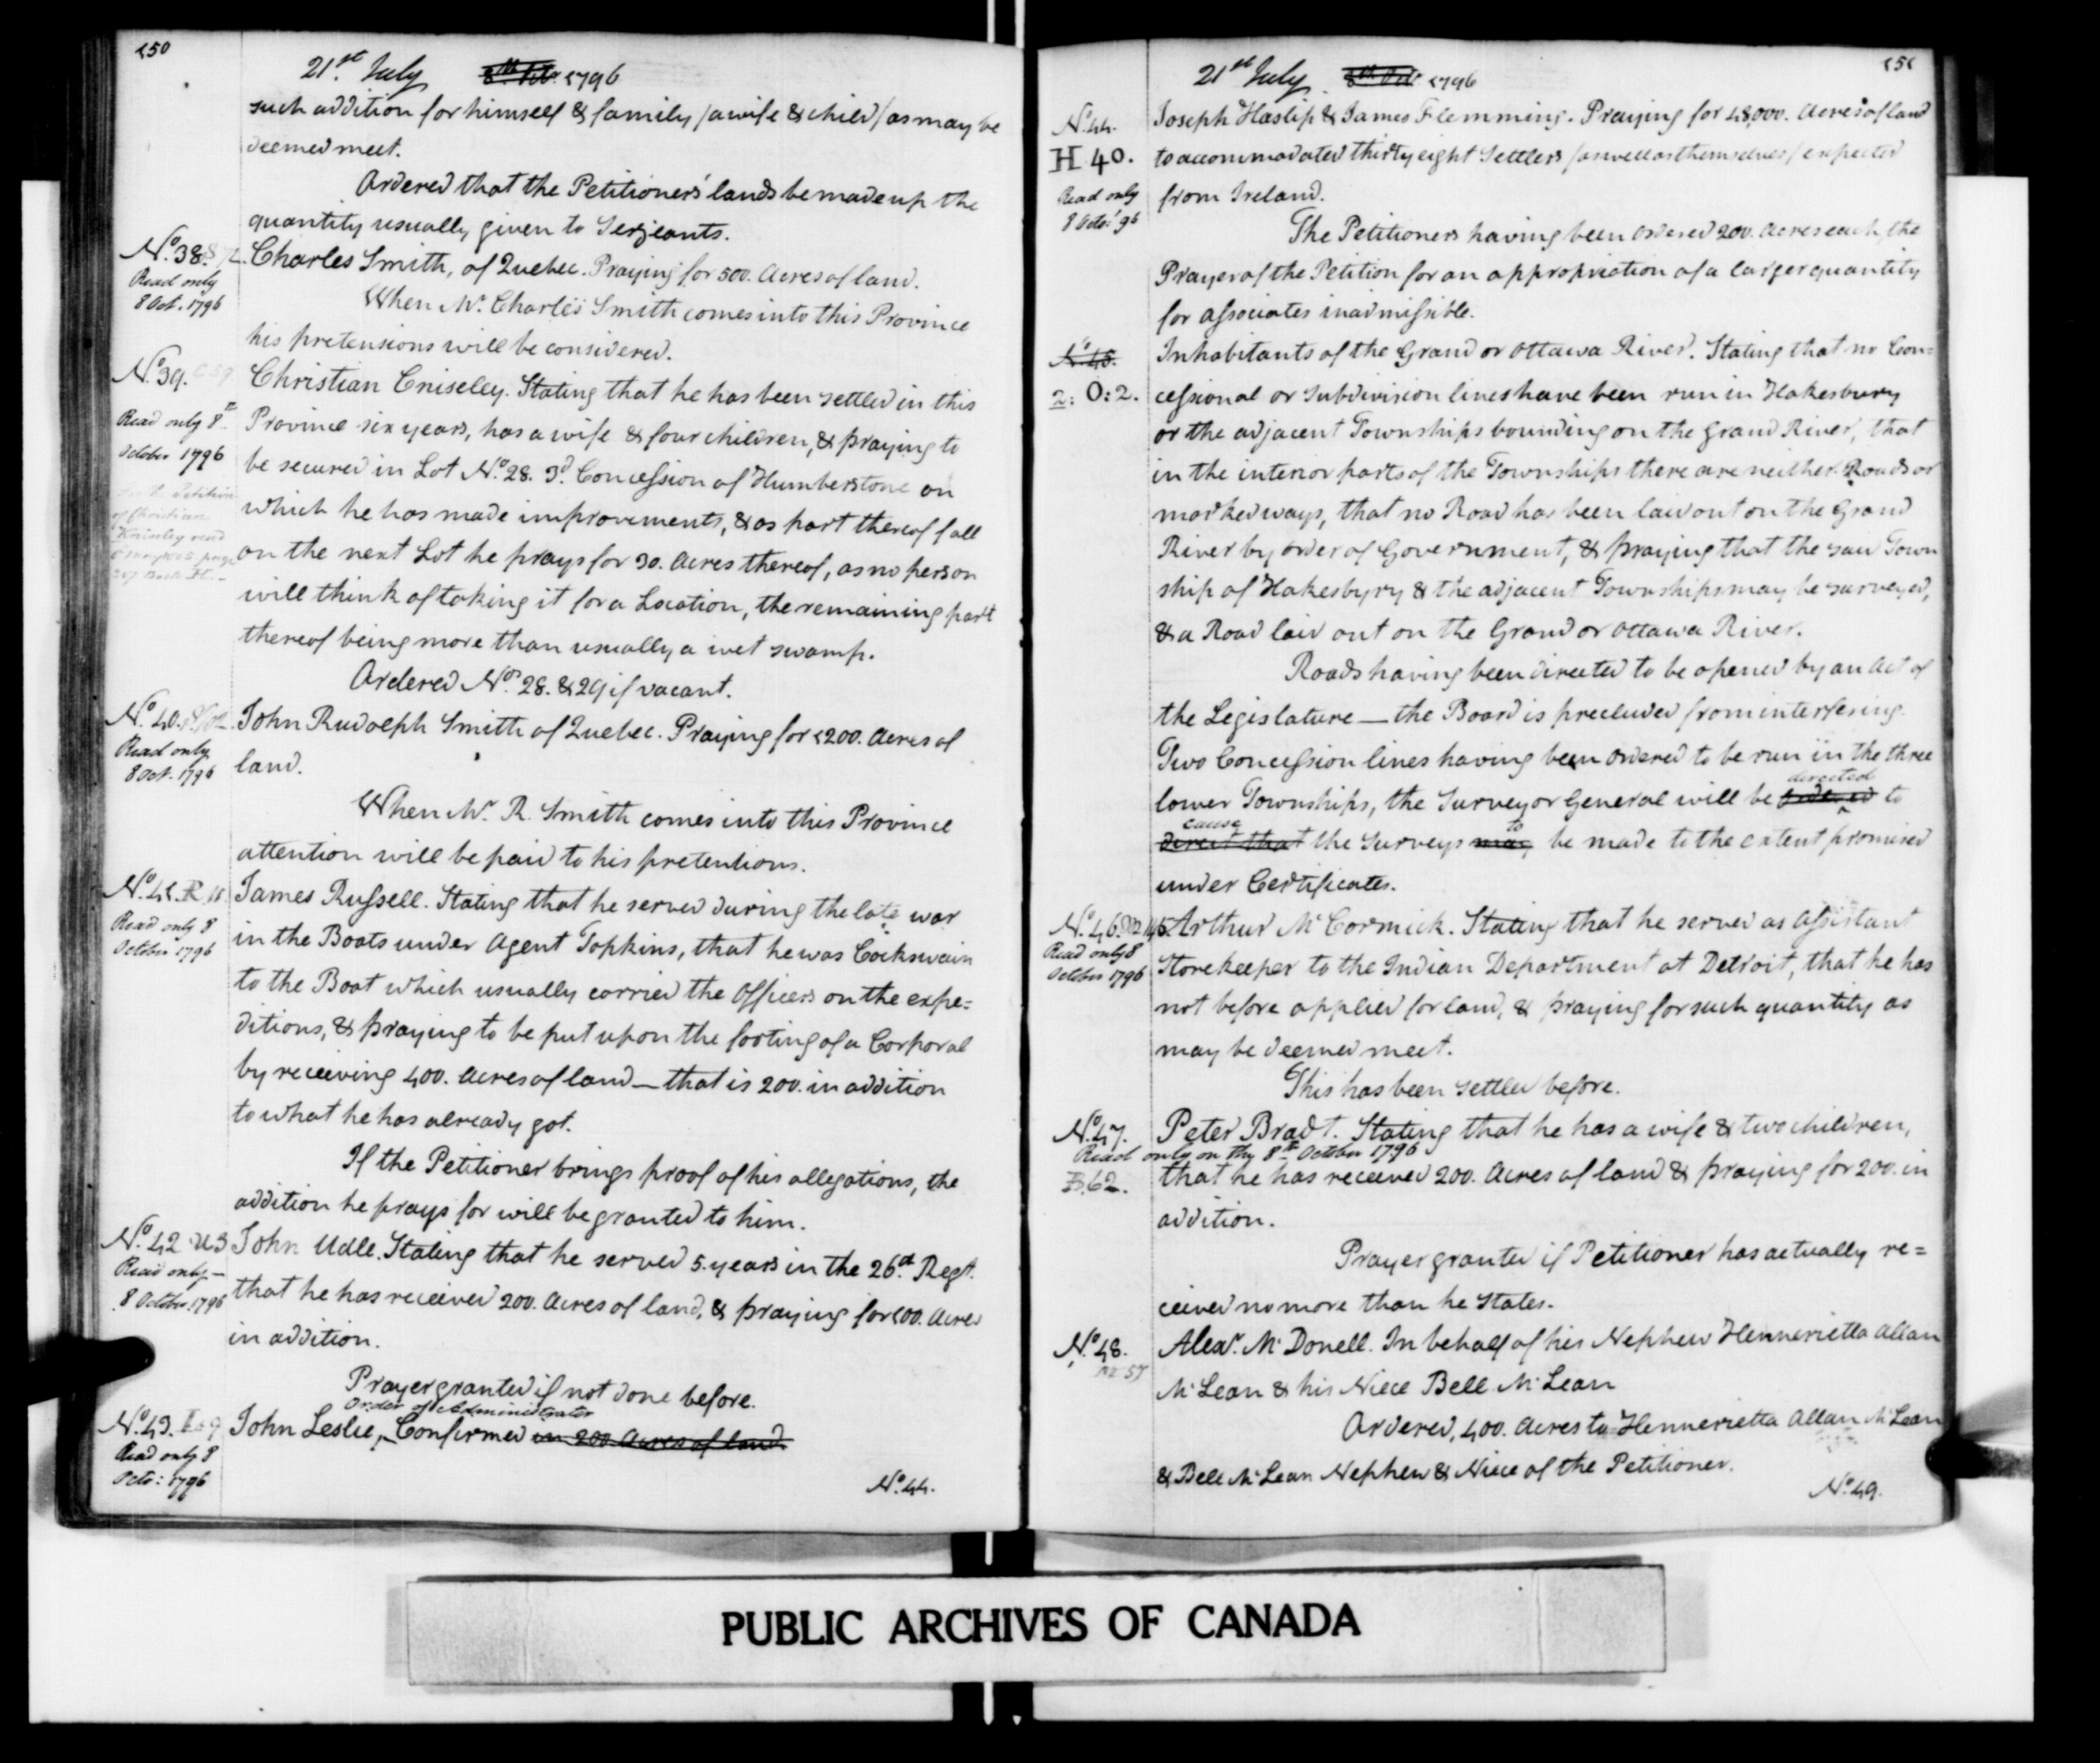 150
21st July 8th Oct. 1796
such addition for himself & family /a wife & child/ as may be
deemed meet.
Ordered that the Petitioners' lands be made up the
quantity usually given to Serjeants.
No. 38.
Read only
8 Oct. 1796
Charles Smith, of Quebec. Praying for 500. Acres of land.
When Mr. Charles Smith comes into this Province
his pretensions will be considered.
No. 39.
Read only 8th
October 1796
Petition
of Christian
Knisley read
Christian Cniseley. Stating that he has been settled in this
Province six years, has a wife & four children, & praying to
be secured in Lot No. 28. 3d. Concession of Humberstone on
which he has made improvements, & as part thereof fall
on the next Lot he prays for 30. Acres thereof, as no person
will think of taking it for a Location, the remaining part
thereof being more than usually a wet swamp.
Ordered Nos. 28. & 29 if vacant.
No. 40.
Read only
8 Oct. 1796
John Rudolph Smith of Quebec. Praying for 1200. Acres of
land.
When Mr. R. Smith comes into this Province
attention will be paid to his pretentions.
No. 41. R 11.
Read only 8
October 1796
James Russell. Stating that he served during the late war
in the Boats under Agent Topkins, that he was Cockswain
to the Boat which usually carried the Officers on the expe=
ditions, & praying to be put upon the footing of a Corporal
by receiving 400. Acres of land — that is 200. in addition
to what he has already got.
If the Petitioner brings proof of his allegations, the
addition he prays for will be granted to him.
No. 42 U3
Read only —
8 October 1796
John Udle. Stating that he served 5. years in the 26th. Regt.
that he has received 200. Acres of land, & praying for 100. Acres
in addition.
Prayer granted if not done before.
Order of Administrator
No. 43.
Read only 8
Octo: 1796
John Leslie, Confirmed in 200 Acres of land.
No. 44.
151
21st July. 8th Oct. 1796
No. 44.
H 40.
Read only
8 Octo: '96
Joseph Haslip & James Flemming. Praying for 48,000. Acres of land
to accommodated thirty eight Settlers /as well as themselves/ expected
from Ireland.
The Petitioners having been Ordered 200. Acres each, the
Prayer of the Petition for an appropriation of a larger quantity
for associates inadmissible.
No. 45.
2: O: 2.
Inhabitants of the Grand or Ottawa River. Stating that no Con=
cessional or Subdivision lines have been run in Hakesbury
or the adjacent Townships bounding on the Grand River, that
in the interior parts of the Townships there are neither Roads or
marked ways, that no Road has been laid out on the Grand
River by order of Government, & praying that the said Town
ship of Hakesbyry & the adjacent Townships may be surveyed,
& a Road laid out on the Grand or Ottawa River.
Roads having been directed to be opened by an Act of
the Legislature — the Board is precluded from interfering.
Two Concession lines having been Ordered to be run in the three
directed
lower Townships, the Surveyor General will be ordered to
cause to
direct that the Surveys may be made to the extent promised
under Certificates.
No. 46.
Read only 8
October 1796
Arthur McCormick. Stating that he served as Assistant
Storekeeper to the Indian Department at Detroit, that he has
not before applied for land, & praying for such quantity as
may be deemed meet.
This has been settled before.
No. 47.
Peter Bradt. Stating that he has a wife & two children,
Read only on thy 8th October 1796
B. 62.
that he has received 200. Acres of land & praying for 200. in
addition.
Prayer granted if Petitioner has actually re=
ceived no more than he States.
No. 48.
Alexr. McDonell. In behalf of his Nephew Hennerietta Allan
McLean & his Niece Bell McLean
Ordered, 400. Acres to Hennerietta Allan McLean
& Bell McLean Nephew & Niece of the Petitioner.
No. 49.
PUBLIC ARCHIVES OF CANADA